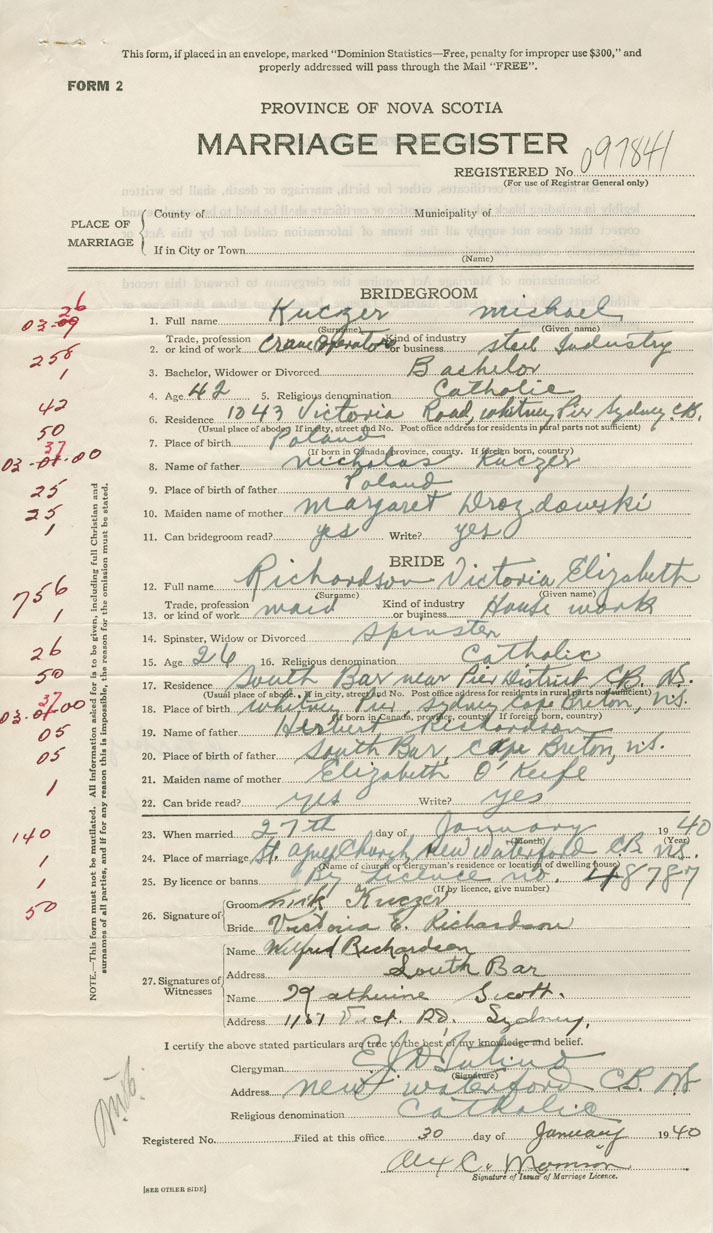 This form, if placed in an envelope, marked "Dominion Statistics—Free, penalty for improper use $300," and
properly addressed will pass through the Mail "FREE".
FORM 2
PROVINCE OF NOVA SCOTIA
MARRIAGE REGISTER
REGISTERED No. 097841
(For use of Registrar General only)
PLACE OF MARRIAGE
County of Municipality of
If in City or Town
(Name)
BRIDEGROOM
26
03-09
1. Full name Kuczer Michael
(Surname) (Given name)
2. Trade, profession or kind of work Crane Operator Kind of industry or business Steel Industry
258
3. Bachelor, Widower or Divorced Bachelor
1
4. Age 42 5. Religious denomination Catholic
42
6. Residence 1043 Victoria Road, Whitney Pier Sydney C.B.
(Usual place of abode. If in city, street and No. Post office address for residents in rural parts not sufficient)
50
7. Place of birth Poland
(If born in Canada, province, county. If foreign born, country)
37
03-01-00
8. Name of father Nicholas Kuczer
9. Place of birth of father Poland
25
10. Maiden name of mother Margaret Drozdowski
25
11. Can bridegroom read? yes Write? yes
1
BRIDE
12. Full name Richardson Victoria Elizabeth
(Surname) (Given name)
756
13. Trade, profession or kind of work maid Kind of industry or business House work
1
14. Spinster, Widow or Divorced Spinster
15. Age 26 16. Religious denomination Catholic
26
17. Residence South Bar near Pier District C.B. N.S.
50
(Usual place of abode. If in city, street and No. Post office address for residents in rural parts not sufficient)
18. Place of birth Whitney Pier, Sydney Cape Breton, N.S.
37
03-01-00
(If born in Canada, province, county. If foreign born, country)
19. Name of father Herbert Richardson
05
20. Place of birth of father South Bar, Cape Breton, N.S.
05
21. Maiden name of mother Elizabeth O'Keefe
22. Can bride read? yes Write? yes
1
23. When married 27th day of January 1940
(Month) (Year)
140
24. Place of marriage St. Agnes Church, New Waterford C.B. N.S.
(Name of church or Clergyman's residence or location of dwelling house)
1
25. By licence or banns By Licence no. 48787
(If by licence, give number)
1
26. Signature of
Groom Kuczer
50
Bride Victoria E. Richardson
27. Signatures of Witnesses
Name Wilfred Richardson
Address South Bar
Name Katherine Scott.
Address 1151 Vict. Rd. Sydney,
I certify the above stated particulars are true to the best of my knowledge and belief.
Clergyman
(Signature)
Address New Waterford C.B. NS
Religious denomination Catholic
Registered No. Filed at this office 30 day of January 1940
Alex C.
Signature of Issuer of Marriage Licence.
[SEE OTHER SIDE]
NOTE.—This form must not be mutilated. All information asked for is to be given, including full Christian and
surnames of all parties, and if for any reason this is impossible, the reason for the omission must be stated.